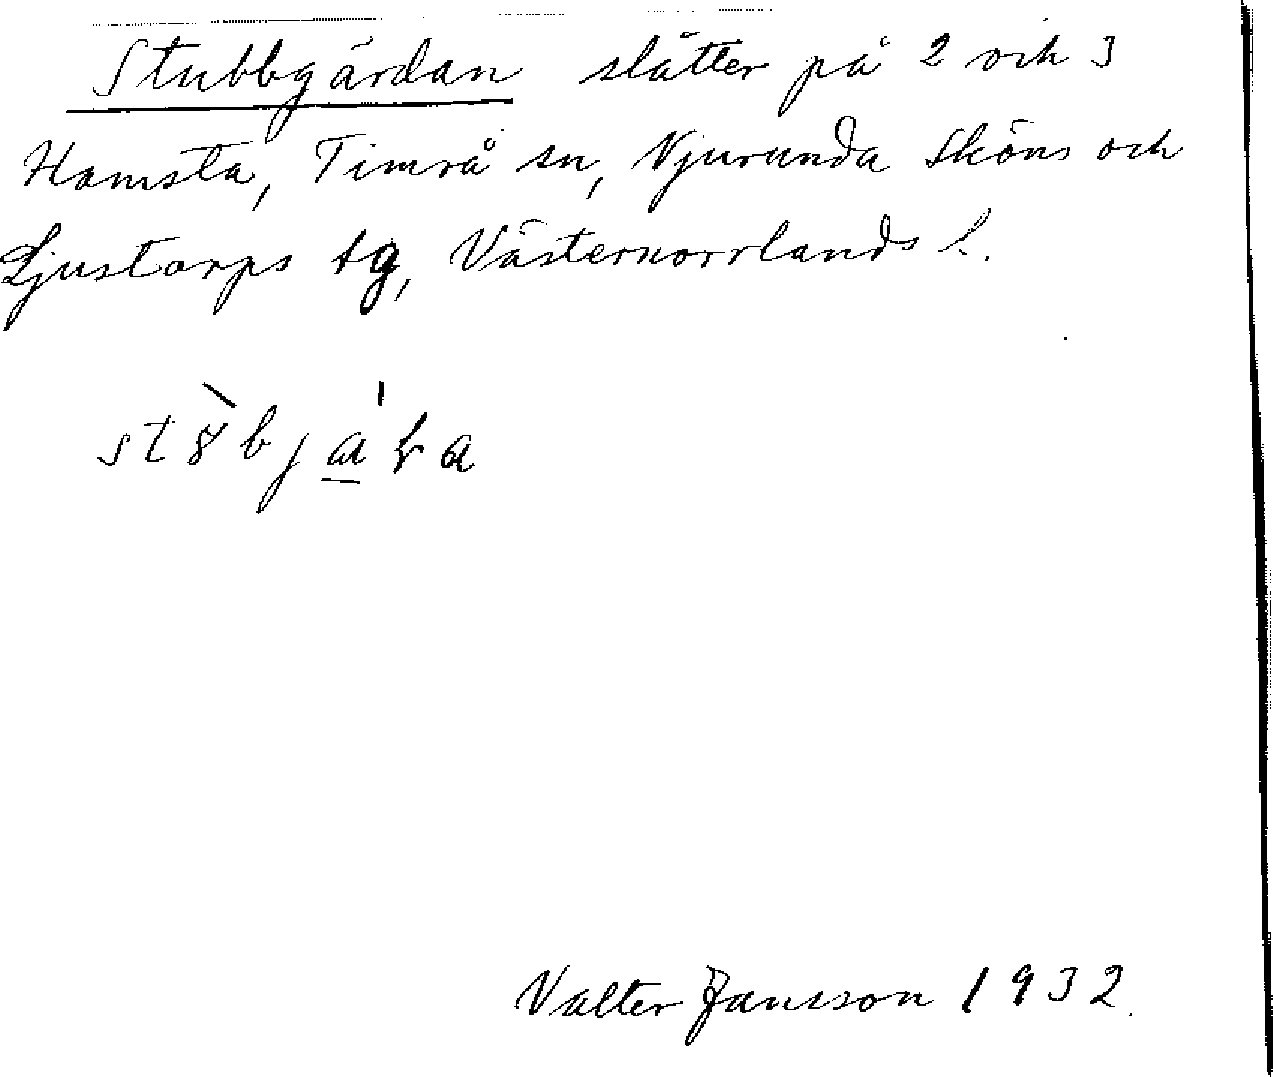 Stubbgärdan slätter på 2 och 3
Hamsta, Timrå sn, Njurunda Sköns och
Ljustorps tg, Västernorrlands l.
Valter Jansson 1932.